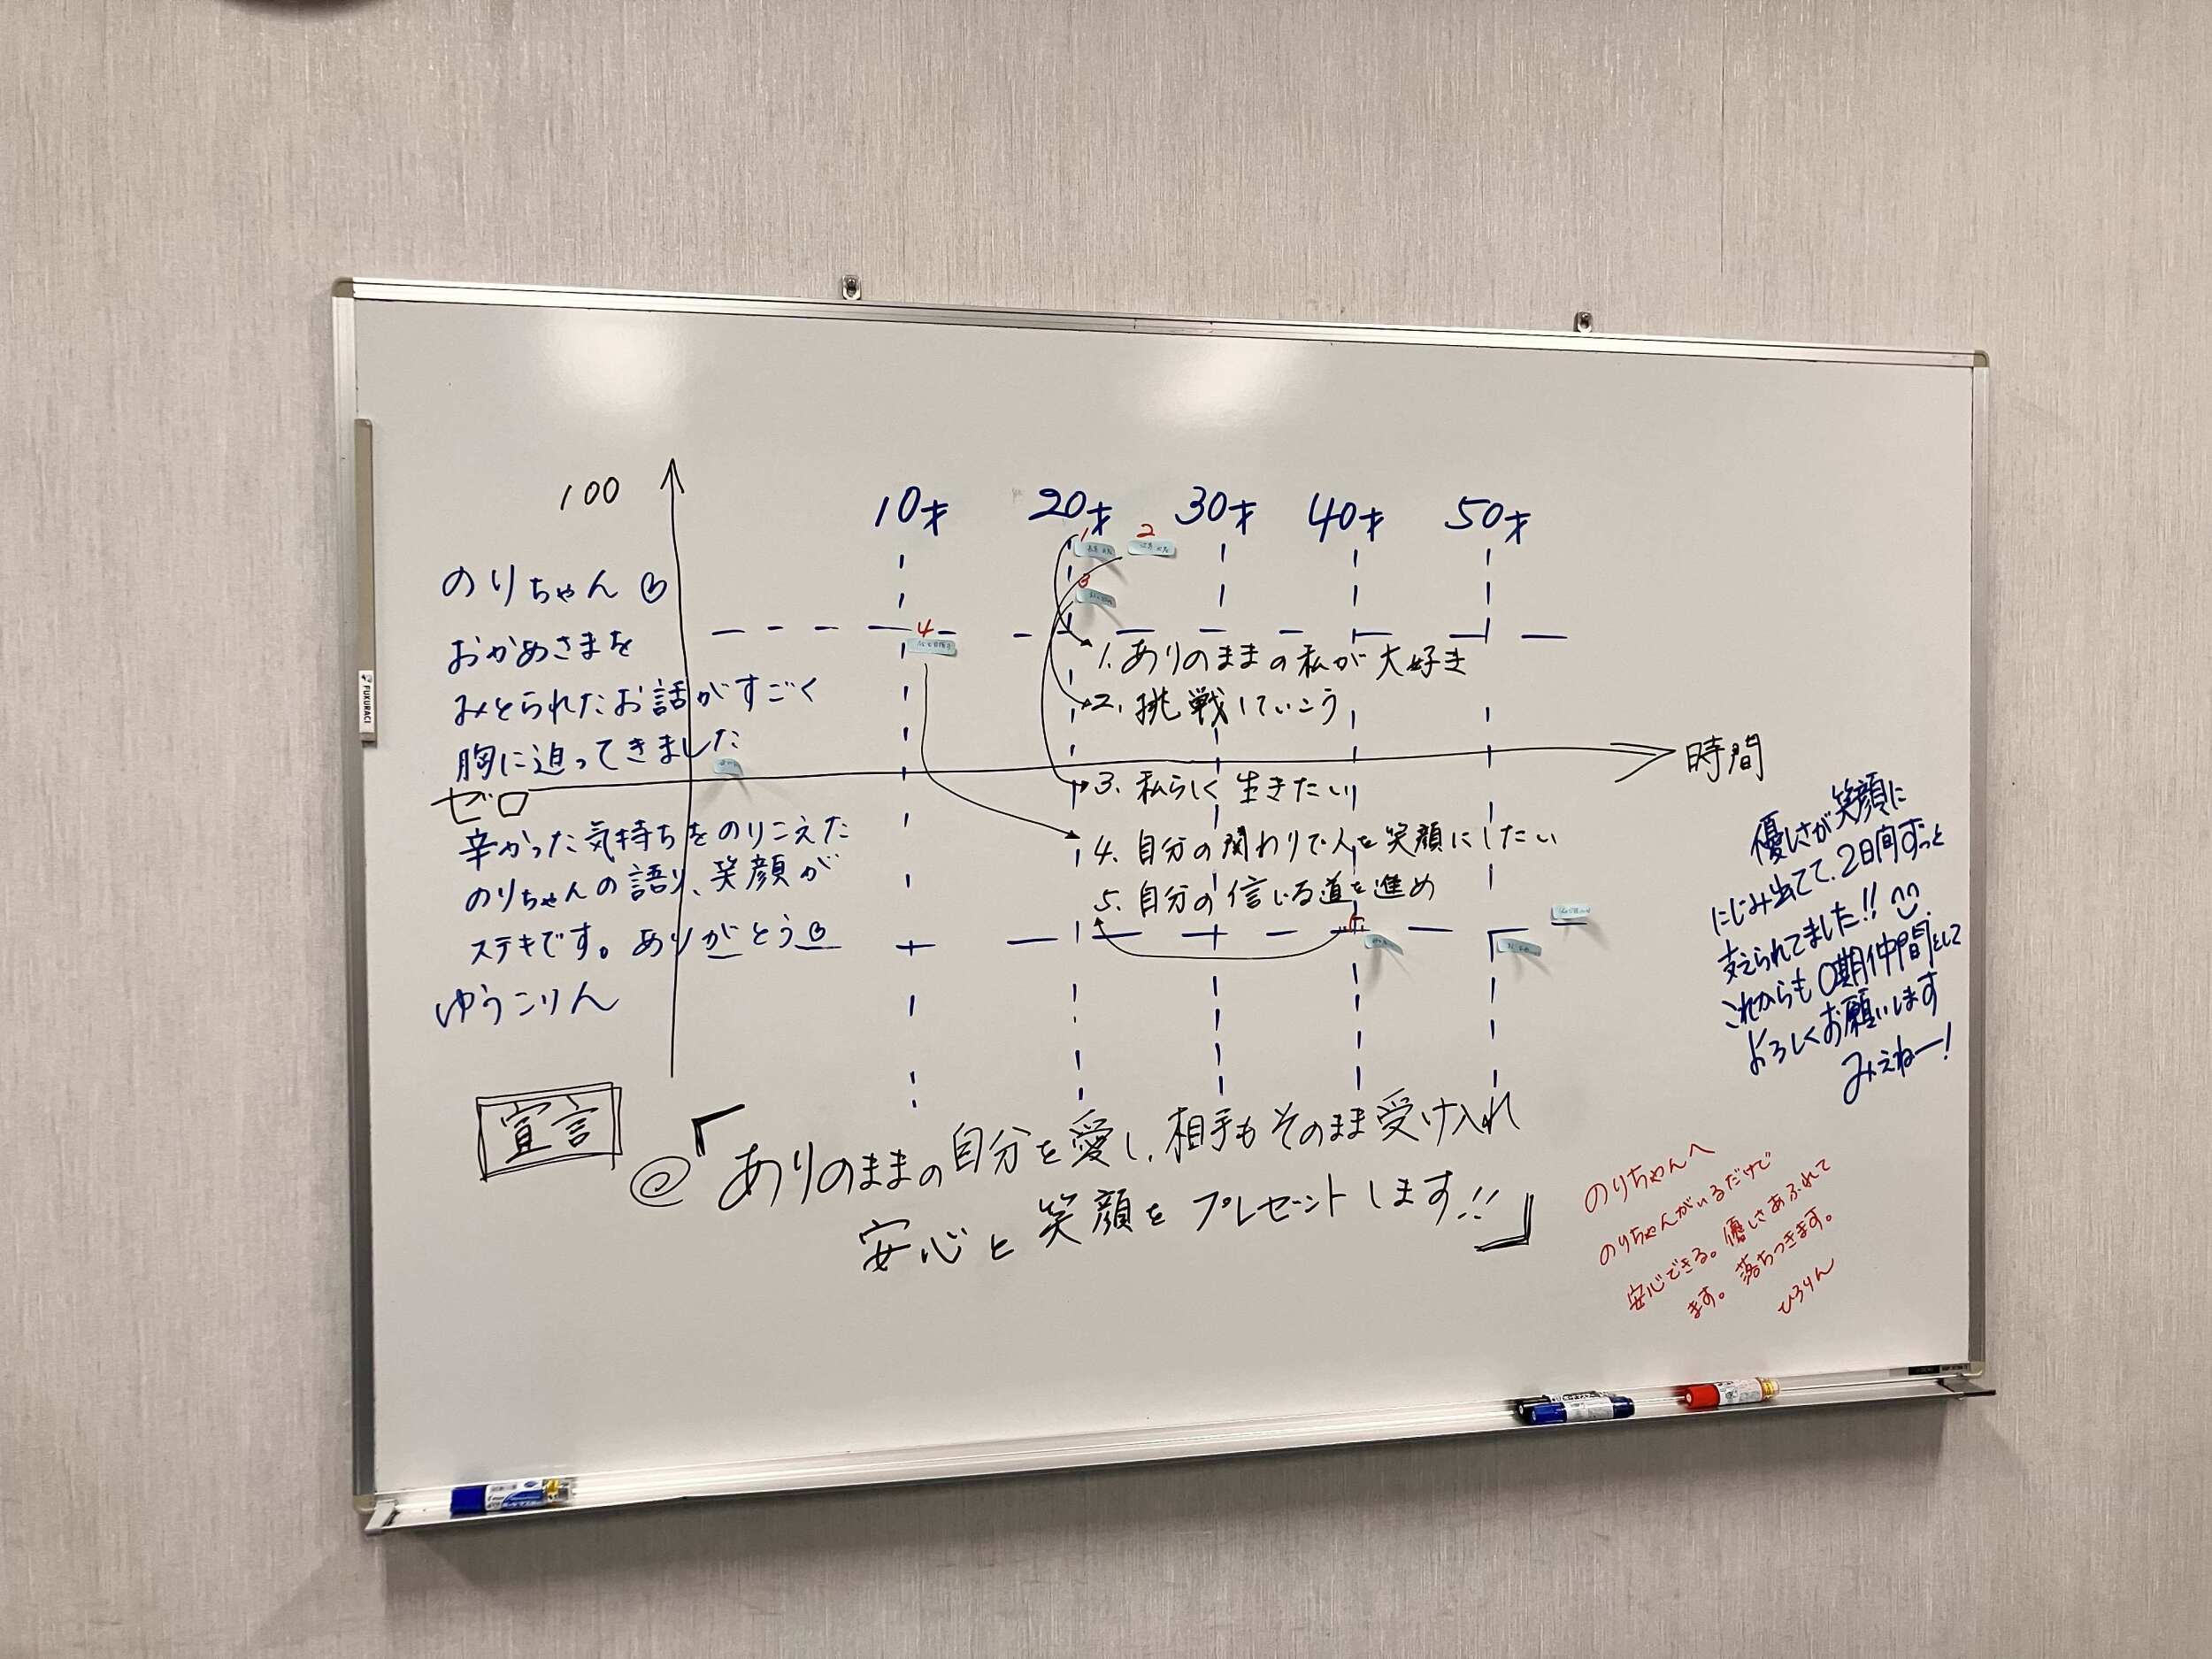 100
10才 20才 30才 40才 50才
1
2
3
4
5
のりちゃん
おかめさまを
みとられたお話がすごく
胸に迫ってきました
ゼロ
辛かった気持ちをのりこえた
のりちゃんの語り、笑顔が
ステキです。ありがとう
ゆうこりん
1. ありのままの私が大好き
2. 挑戦していこう
3. 私らしく生きたい
4. 自分の関わりで人を笑顔にしたい
5. 自分の信じる道を進め
時間
優しさが笑顔に
にじみ出てて、2日間ずっと
支えられてました!!
これからも0期仲間として
よろしくお願いします
みえねー!
宣言
@「ありのままの自分を愛し、相手もそのまま受け入れ
安心と笑顔をプレゼントします!!」
のりちゃんへ
のりちゃんがいるだけで
安心できる。優しさあふれて
ます。落ちつきます。
ひろりん
FUKURACI